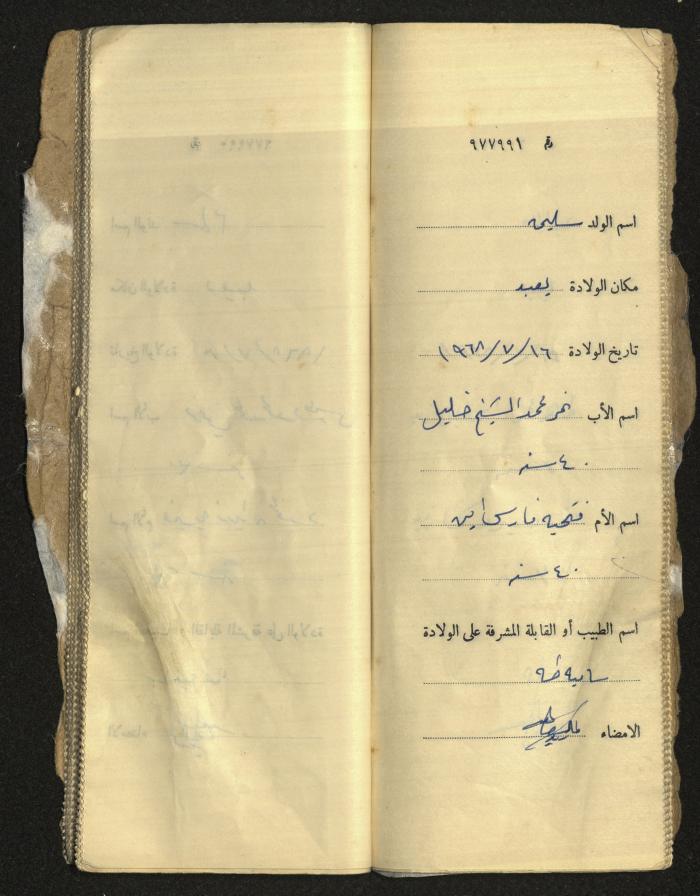 رقم ٩٧٧٩٩١
اسم الولد سليمه
مكان الولادة يعبد
تاريخ الولادة ١٦/٧/١٩٦٨
اسم الأب نمر محمد الشيخ خليل
٤٠ سنه
اسم الأم فتحيه فارس
٤٠ سنه
اسم الطبيب أو القابلة المشرفة على الولادة
ساميه طه
الامضاء